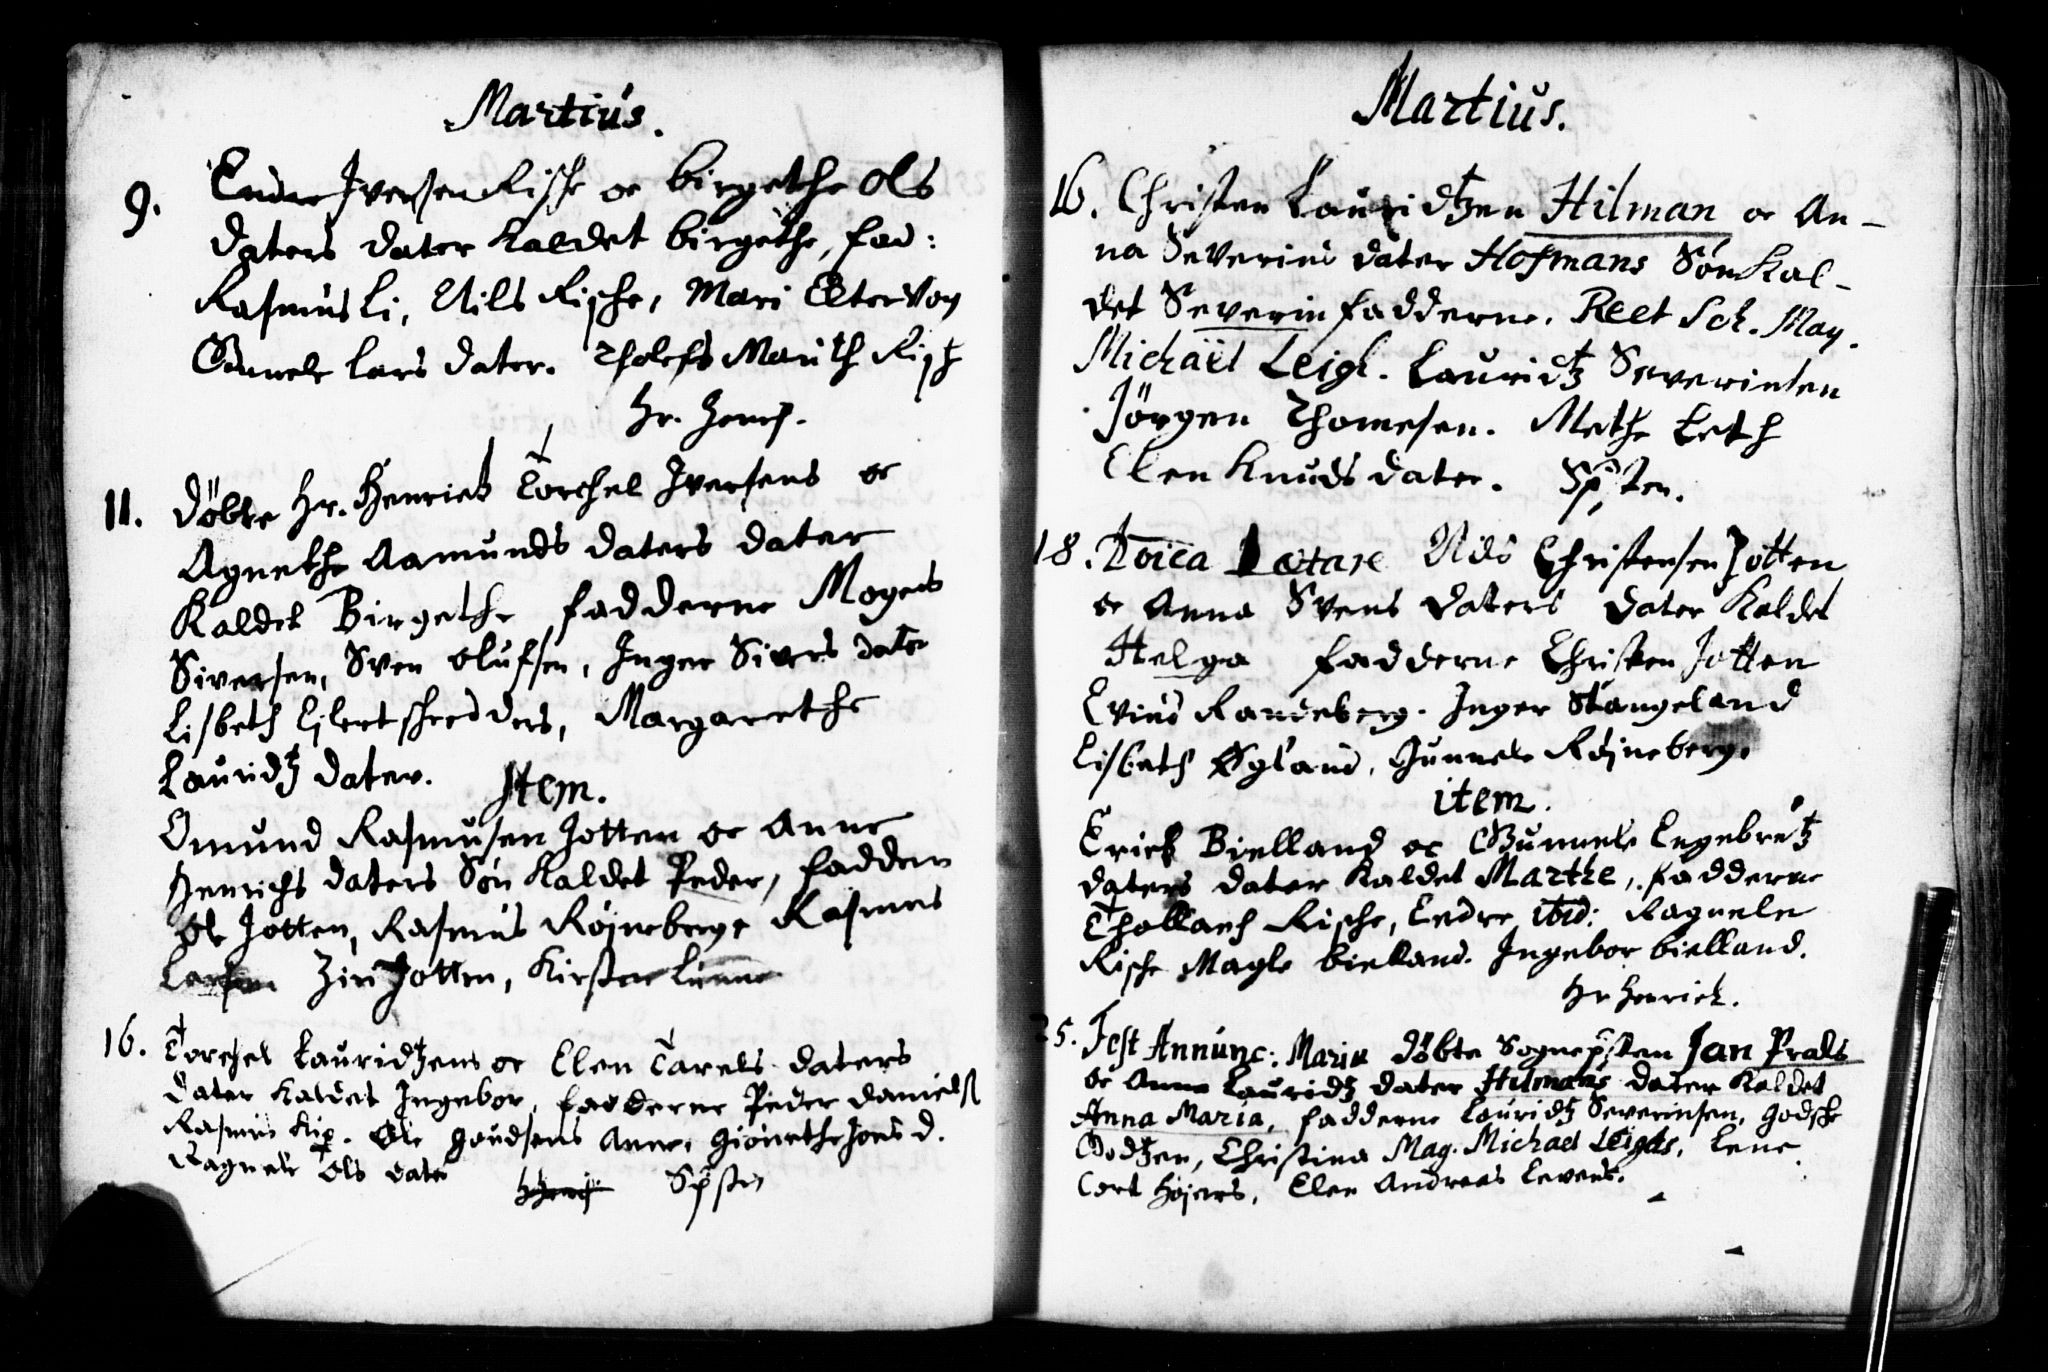 Martius.
9. Endre Iversen Rische oc birgethe Ols
daters dater kaldet birgethe, fad:
Rasmus Li, Nils Rische, Mari
Gunele Lars dater. Tholefs Marith
Hr. Henr.
11. døbte Hr. Henrick Torchel Iversens oc
Agnethe Aamunds daters dater
Kaldet Birgethe fadderne Mogens
Siversen, Sven olufsen, Inger Sivers dater
Lisbeth Eilert schreders, Margarethe
Lauridtz dater.
Item.
Omund Rasmusen Jotten oc Anne
Henrichs daters Søn kaldet Peder, fadderne
Ole Jotten, Rasmus Røjneberge Rasmus
Larsen Ziri Jotten, Kirsten Lunne
16. Torchel Lauridtzens oc Elen Tarels daters
dater kaldet Ingebor, fadderne Peder daniels
Rasmus Kip. Ole Goudsens Anne, Giønethe Jons d.
Ragnele Ols dater Spster
Martius.
16. Christen Lauridtzen Hilman oc An-
na Severins dater Hofmans Søn Kal-
det Severin fadderne. Rect Sch. Mag.
Michaël Leigl. Lauridtz Severinsen
Jörgen Thomesen. Methe Leth
Elen Knuds dater. Spsten.
18. Doica Lætare Nils Christensen Jotten
oc Anna Svens daters dater Kaldet
Helga fadderne Christen Jotten
Evind Randeberg. Inger Stangeland
Lisbeth Øgland, Gunnele Røjneberge
item.
Erick Bielland oc Gunnele Engebretz
daters dater kaldet Marthe, fadderne
Thollach Rische, Endre ibid: Ragnele
Rische Magle bielland. Ingebor bielland.
Hr Henrich.
25. Fest Annunc: Mariæ døbte Sognepsten Jan Prals
oc Anna Lauridtz dater Hilmans dater kaldet
Anna Maria, fadderne Lauridtz Severinsen, Godsche
Bodtzen, Christina Mag. Michael Leigls, Lene
Cort Højers, Elen Andreas Levens.